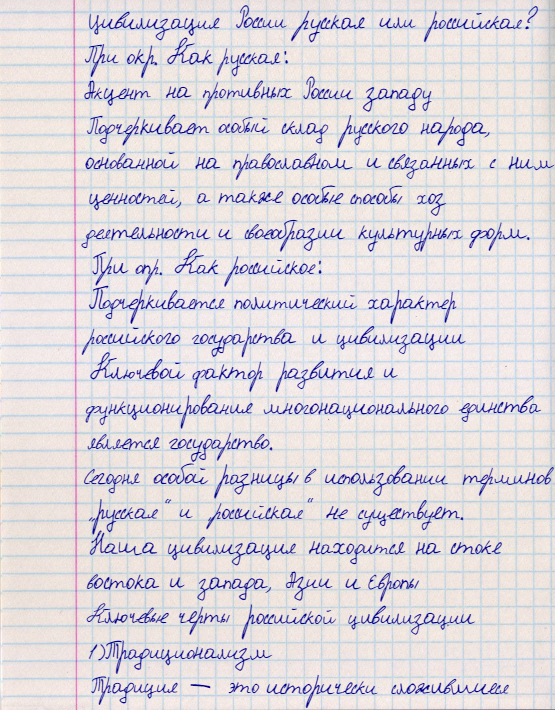 Цивилизация России русская или российская?
При окр. Как русская:
Акцент на противных России западу
Подчеркивает особый склад русского народа,
основанной на православном и связанных с ним
ценностей, а также особые способы хоз
деятельности и своеобразии культурных форм.
При опр. Как российское:
Подчеркивается политический характер
российского государства и цивилизации
Ключевой фактор развития и
функционирования многонационального единства
является государство.
Сегодня особой разницы в использовании терминов
„русская“ и российская“ не существует.
Наша цивилизация находится на стоке
востока и запада, Азии и Европы
Ключевые черты российской цивилизации
1) Традиционализм
Традиция — это исторически сложившиеся